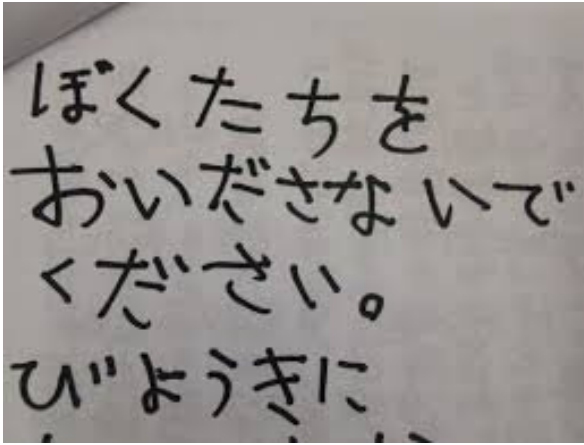 ぼくたちを
おいださないで
ください。
びようきに